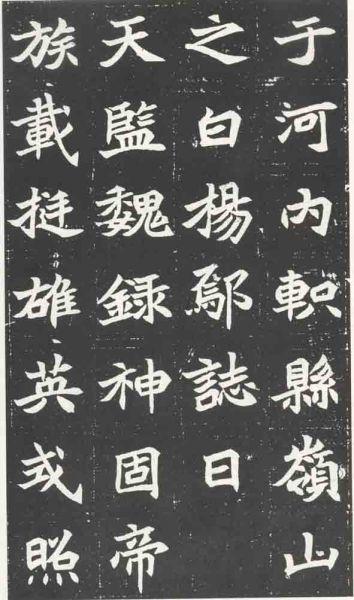 于河内軹縣嶺山
之白揚鄢誌曰
天監魏録神固帝
族載挺雄英或照